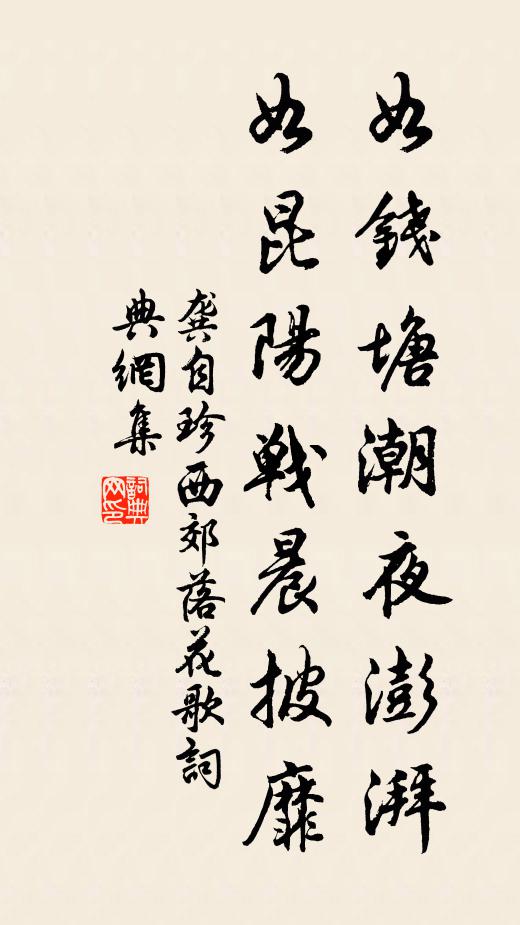 如錢塘潮夜澎湃
如昆陽戰晨披靡
龔自珍西郊落花歌詞
典網集
詞典網印